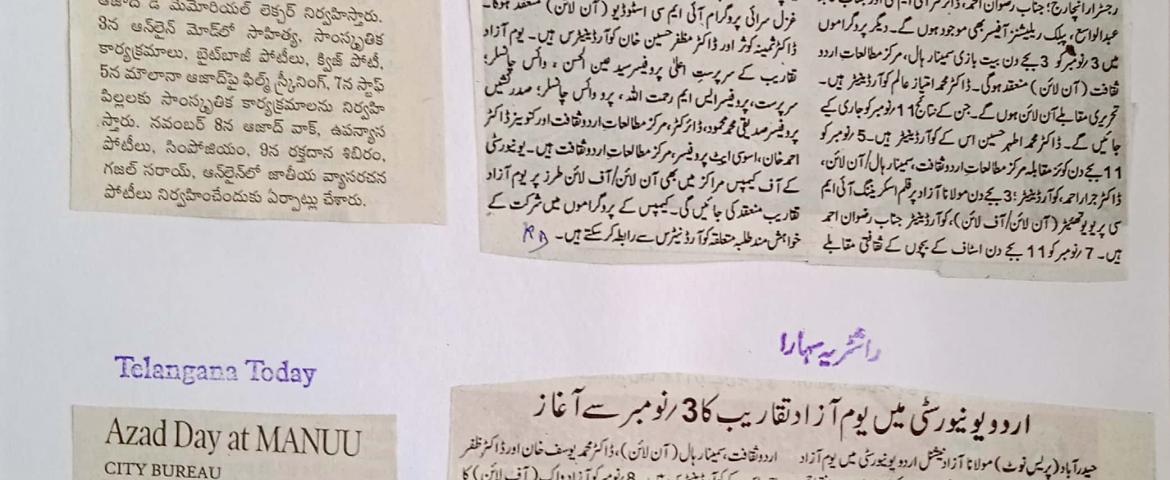 ఆజాద్ డే మెమోరియల్ లెక్చర్ నిర్వహిస్తారు.
3న ఆన్‌లైన్ మోడ్‌లో సాహిత్య, సాంస్కృతిక
కార్యక్రమాలు, బైట్‌బాజీ పోటీలు, క్విజ్ పోటీ,
5న మౌలానా ఆజాద్‌పై ఫిల్మ్ స్క్రీనింగ్, 7న స్టాఫ్
పిల్లలకు సాంస్కృతిక కార్యక్రమాలను నిర్వహి
స్తారు. నవంబర్ 8న ఆజాద్ వాక్, ఉపన్యాస
పోటీలు, సింపోజియం, 9న రక్తదాన శిబిరం,
గజల్ సరాయ్, ఆన్‌లైన్‌లో జాతీయ వ్యాసరచన
పోటీలు నిర్వహించేందుకు ఏర్పాట్లు చేశారు.
رجسٹرار انچارج؛ جناب رضوان احمد،
عبدالواسع، پبلک ریلیشنز آفیسر بھی موجود ہوں گے۔ دیگر پروگراموں
میں 3/نومبر کو 3 بجے دن بیت بازی سمینار ہال، مرکز مطالعات اردو
ثقافت (آن لائن) منعقد ہوگی۔ ڈاکٹر محمد امتیاز عالم کوآرڈینیٹر ہیں۔
تحریری مقابلے آن لائن ہوں گے۔ جن کے نتائج 11/نومبر کو جاری کیے
جائیں گے۔ ڈاکٹر محمد اطہر حسین اس کے کوآرڈینیٹر ہیں۔ 5/نومبر کو
11 بجے دن کوئز مقابلہ مرکز مطالعات اردو ثقافت، سمینار ہال/آن لائن،
ڈاکٹر جرار احمد، کوآرڈینیٹر؛ 3 بجے دن مولانا آزاد پر فلم اسکریننگ آئی ایم
سی پریویو تھیٹر (آن لائن/آف لائن)، کوآرڈینیٹر جناب رضوان احمد
ہیں۔ 7/نومبر کو 11 بجے دن اسٹاف کے بچوں کے ثقافتی مقابلے
غزل سرائی پروگرام آئی ایم سی اسٹوڈیو (آن لائن) منعقد ہوگا۔
ڈاکٹر ثمینہ کوثر اور ڈاکٹر مظفر حسین خان کوآرڈینیٹرس ہیں۔ یوم آزاد
تقاریب کے سرپرست اعلیٰ پروفیسر سید عین الحسن، وائس چانسلر؛
سرپرست، پروفیسر ایس ایم رحمت اللہ، پرو وائس چانسلر؛ صدر نشیں
پروفیسر صدیقی محمد محمود، ڈائرکٹر، مرکز مطالعات اردو ثقافت اور کنوینر ڈاکٹر
احمد خان، اسوسی ایٹ پروفیسر، مرکز مطالعات اردو ثقافت ہیں۔ یونیورسٹی
کے آف کیمپس مراکز میں بھی آن لائن/آف لائن طرز پر یوم آزاد
تقاریب منعقد کی جائیں گی۔ کیمپس کے پروگراموں میں شرکت کے
خواہش مند طلبہ متعلقہ کوآرڈینیٹرس سے رابطہ کر سکتے ہیں۔
Telangana Today
Azad Day at MANUU
CITY BUREAU
راشٹریہ سہارا
اردو یونیورسٹی میں یوم آزاد تقاریب کا 3/نومبر سے آغاز
حیدرآباد (پریس نوٹ) مولانا آزاد نیشنل اردو یونیورسٹی میں یوم آزاد
اردو ثقافت، سمینار ہال (آن لائن)، ڈاکٹر محمد یوسف خان اور ڈاکٹر ظفر
8/نومبر کو آزاد واک (آف لائن) کا